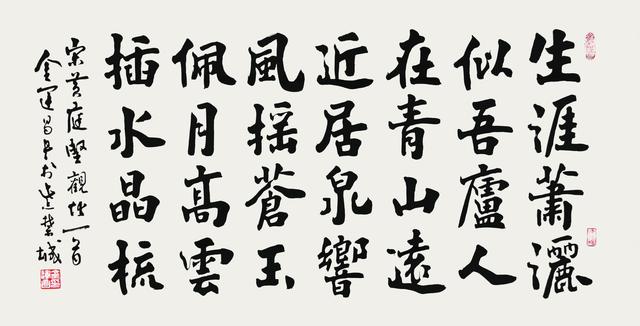 生涯蕭灑
似吾廬人
在青山遠
近居泉響
風摇蒼玉
佩月高雲
插水晶梳
宋黄庭堅觀化一首
金運昌书於紫禁城